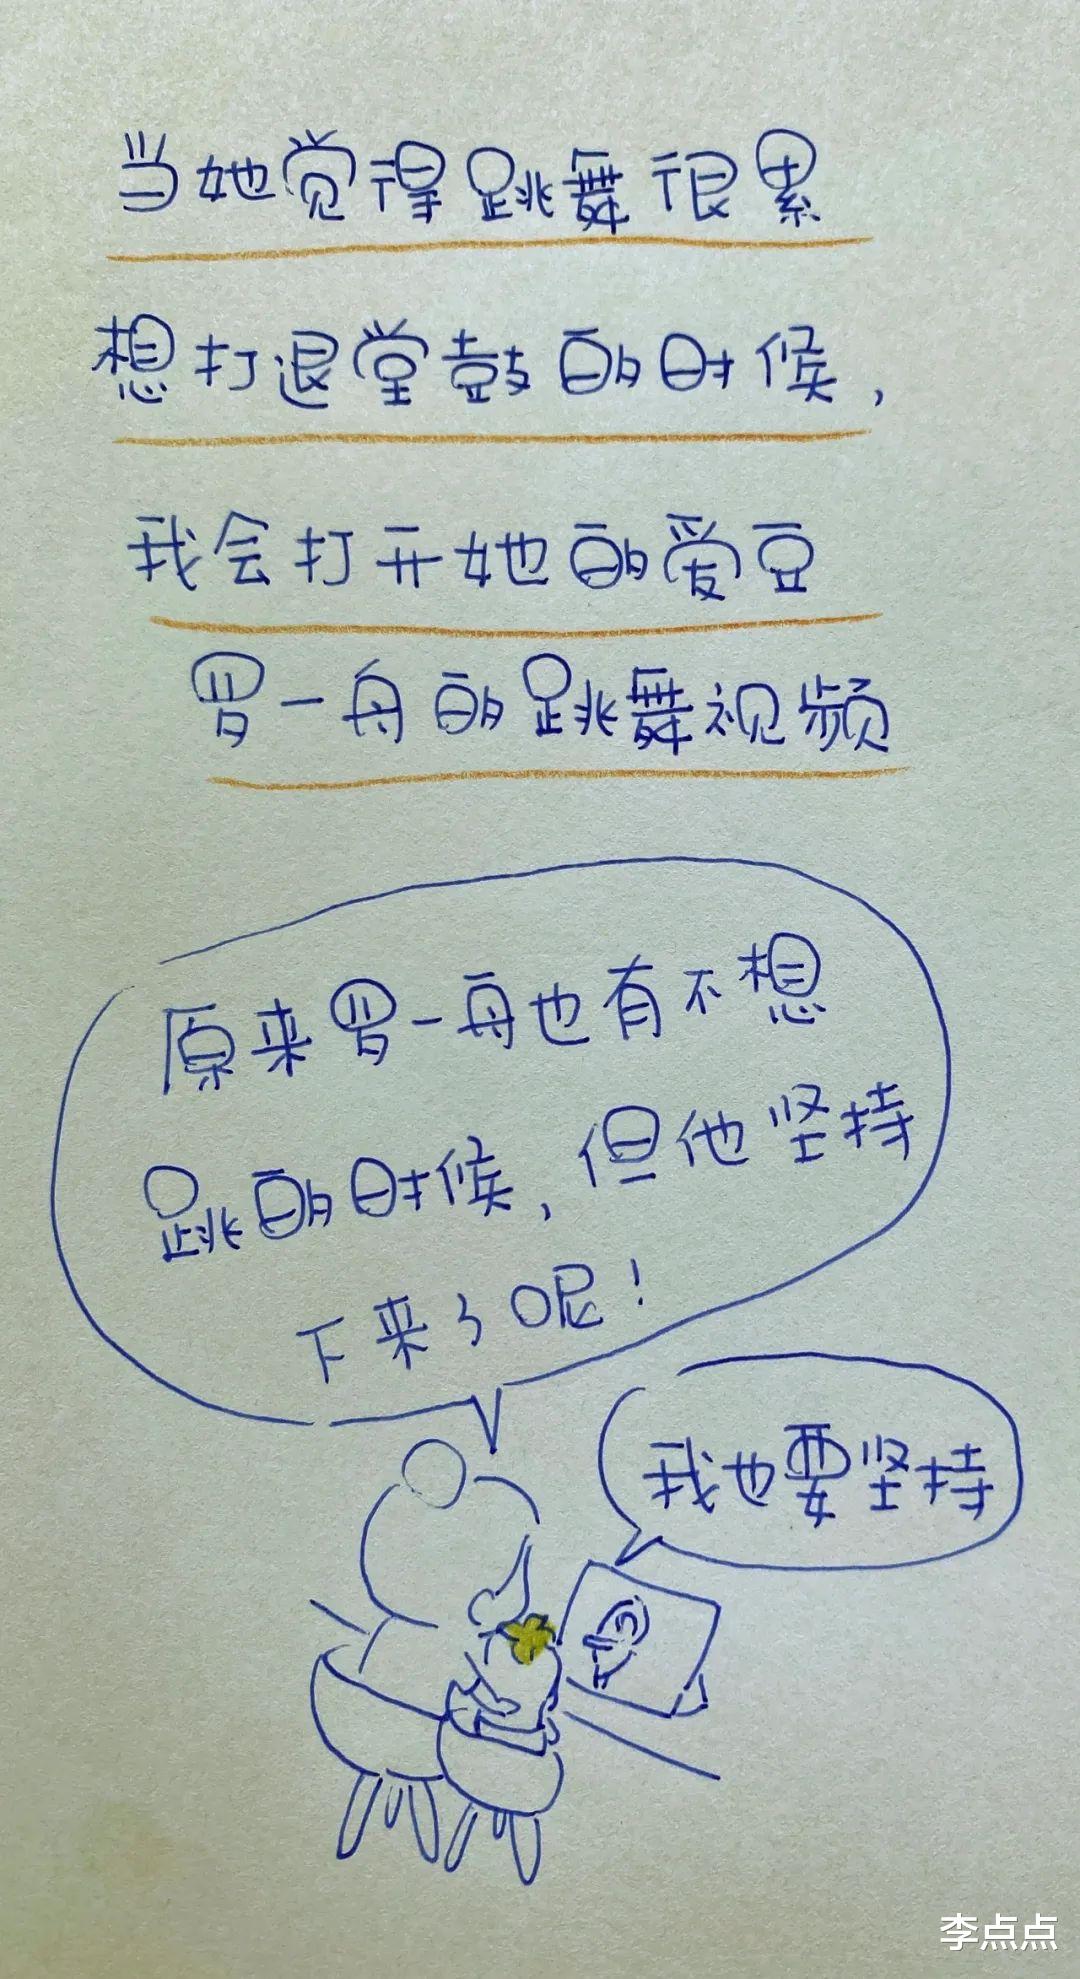 当她觉得跳舞很累
想打退堂鼓的时候,
我会打开她的爱豆
罗一舟的跳舞视频
原来罗一舟也有不想
跳的时候,但他坚持
下来了呢!
我也要坚持
李点点